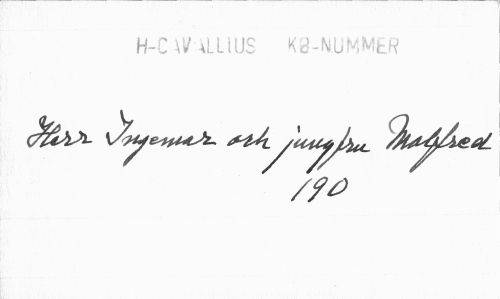 H-CAVALLIUS KB-NUMMER
Herr Ingemar och jungfru Malfred
190